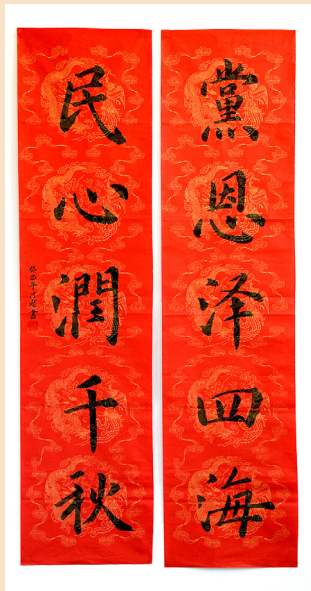 黨恩泽四海
民心潤千秋